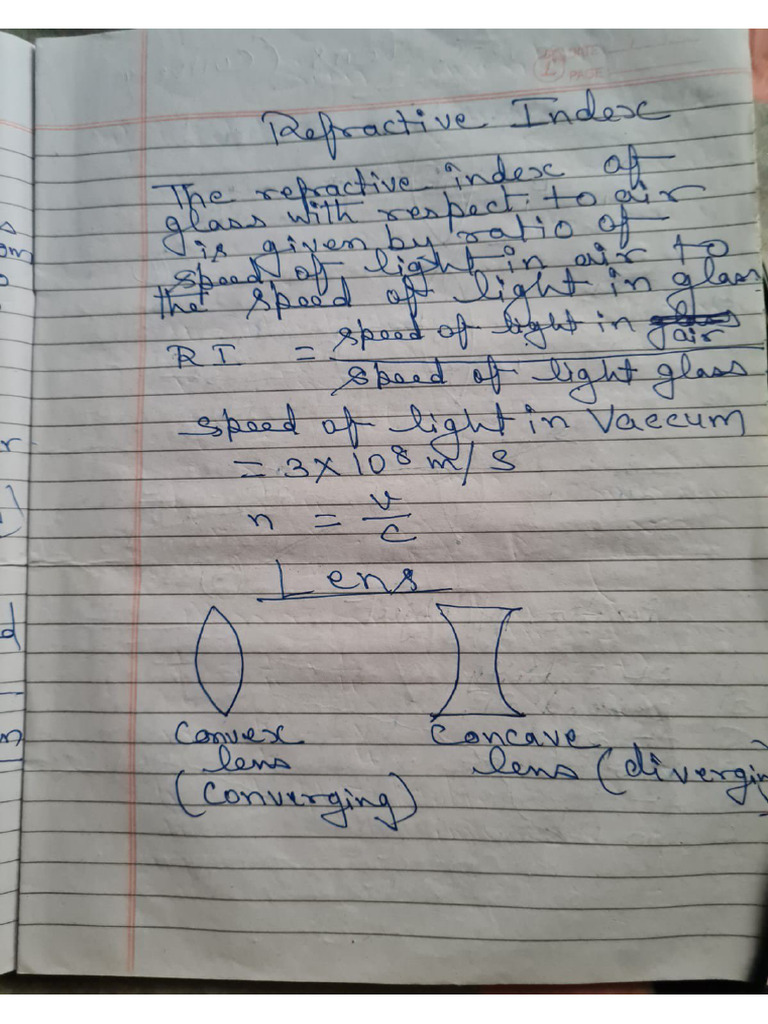 Refractive Index
The refractive index of
glass with respect to air
is given by ratio of
speed of light in air to
the speed of light in glass
RI = speed of light in air
speed of light glass
speed of light in Vaccum
= 3 × 10⁸ m/s
n = v/c
Lens
Convex
lens
(Converging)
Concave
lens (divergin